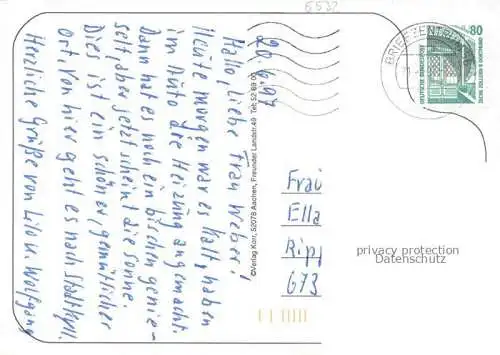 5532
20.6.97
Hallo, liebe Frau Weber!
Heute morgen war es kalt, haben
im Auto die Heizung angemacht.
Dann hat es noch ein bißchen genie-
selt, aber jetzt scheint die Sonne.
Dies ist ein schöner, gemütlicher
Ort. Von hier geht es nach Stadtkyll.
Herzliche Grüße von Lilo u. Wolfgang
©Verlag Korr, 52078 Aachen, Freunder Landstr. 49
BRIEFZEN
80
DEUTSCHE BUNDESPOST
ZECHE ZOLLERN II DORTMUND
Frau
Ella
Ripp
673
privacy protection
Datenschutz